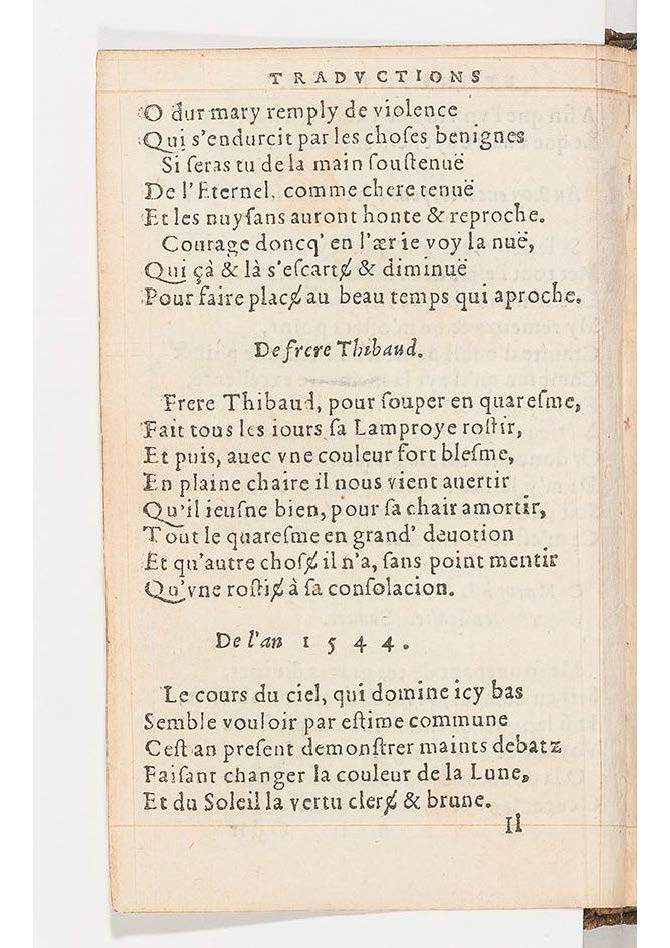 TRADVCTIONS
O dur mary remply de violence
Qui s'endurcit par les choſes benignes
Si ſeras tu de la main ſouſtenuë
De l'Eternel, comme chere tenuë
Et les nuyſans auront honte & reproche.
Courage doncq' en l'ærie voy la nuë,
Qui çà & là s'eſcartɇ & diminuë
Pour faire placɇ au beau temps qui aproche.
De frere Thibaud.
Frere Thibaud, pour ſouper en quareſme,
Fait tous les iours ſa Lamproye roſtir,
Et puis, auec vne couleur fort bleſme,
En plaine chaire il nous vient auertir
Qu'il ieuſne bien, pour ſa chair amortir,
Tout le quareſme en grand' deuotion
Et qu'autre choſɇ il n'a, ſans point mentir
Qu'vne roſtiɇ à ſa conſolacion.
De l'an 1544.
Le cours du ciel, qui domine icy bas
Semble vouloir par eſtime commune
Ceſt an preſent demonſtrer maints debatz
Faiſant changer la couleur de la Lune,
Et du Soleil la vertu clerɇ & brune.
Il